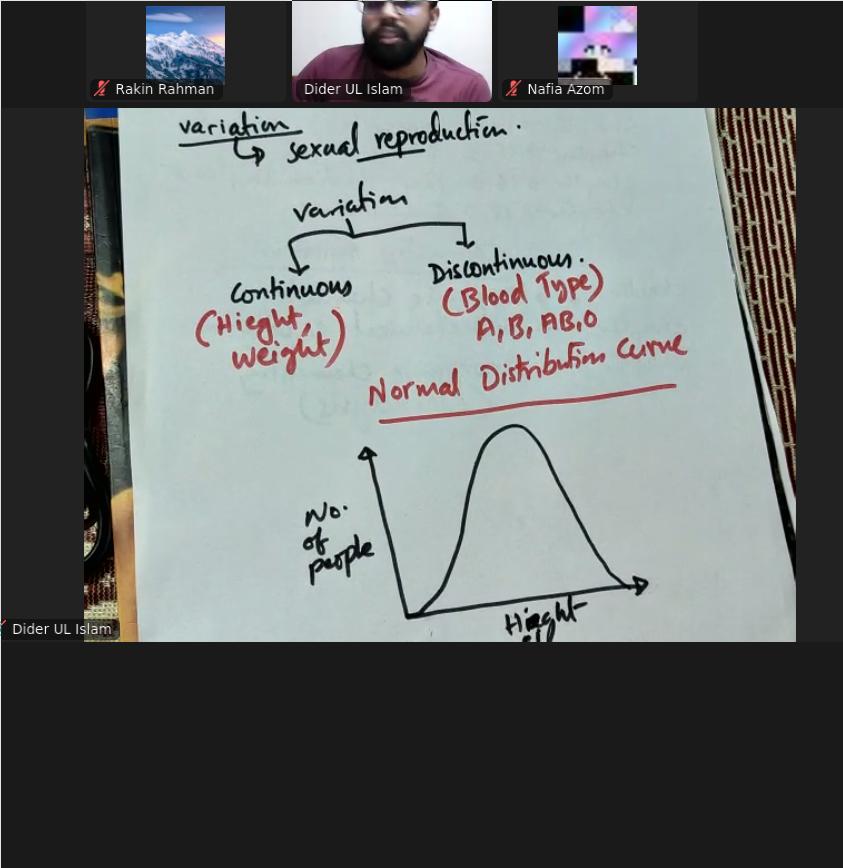 Rakin Rahman
Dider UL Islam
Nafia Azom
variation
↳ sexual reproduction.
variation
Continuous
(Hieght,
weight)
Discontinuous.
(Blood Type)
A, B, AB, O
Normal Distribution Curve
No.
of
people
Hieght
Dider UL Islam